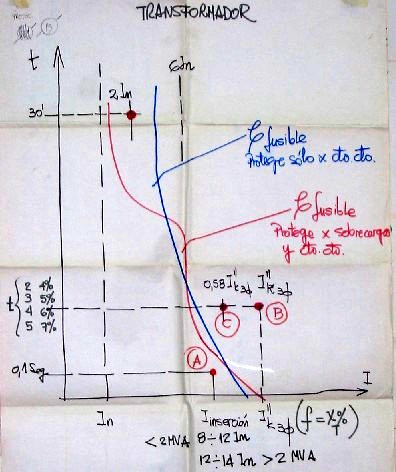 TRANSFORMADOR
t
6In
2 In
30'
ℭ fusible
Protege sólo x cto. cto.
ℭ fusible
Protege x sobrecargas
y cto. cto.
t
2 4%
3 5%
4 6%
5 7%
0,58 I"k3ϕ I"k3ϕ
C
B
A
0,1 Seg
I
In
I inserción
I"k3ϕ (f = X%T)
< 2 MVA 8÷12 In
12÷14 In > 2 MVA